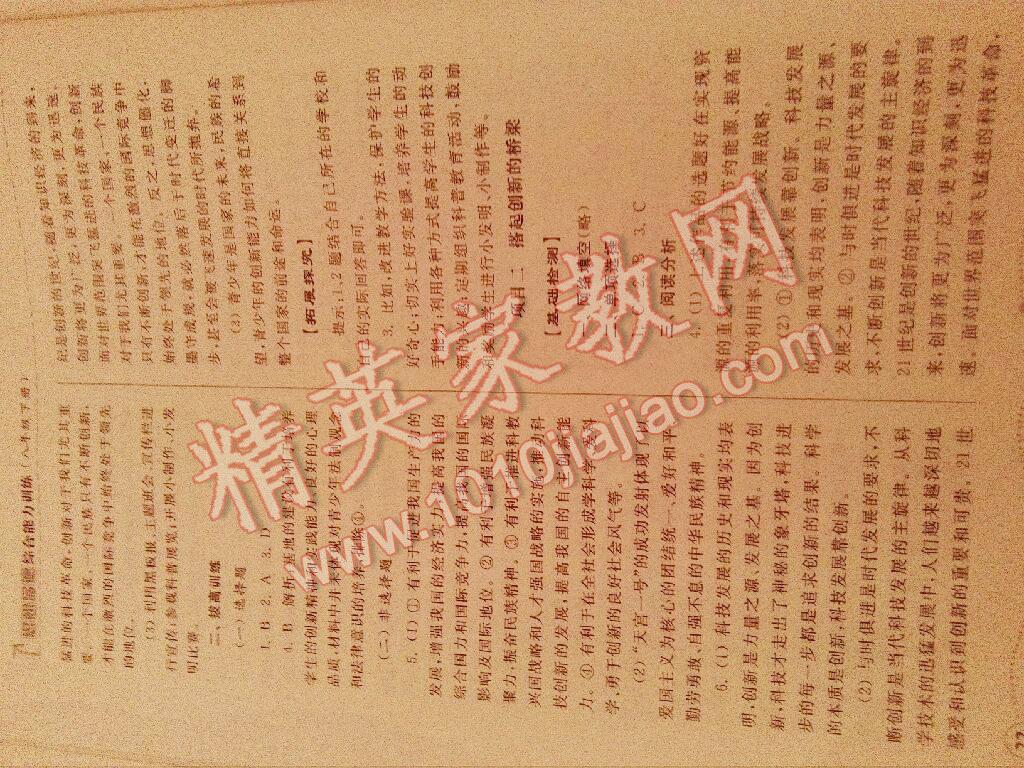 综合能力训练(八年级下册)
猛进的科技革命,创新对于我们尤其重
要。一个国家、一个民族只有不断创新,
才能在激烈的国际竞争中始终处于领先
的地位。
(3)利用黑板报、主题班会、宣传栏进
行宣传;参观科普展览,开展小制作、小发
明比赛。
二、拔高训练
(一)选择题
1. B 2. A 3. D
4. B 解析:基地的建设有利于培养
学生的创新精神和实践能力、良好的心理
品质,材料中并未体现对青少年法制观念
和法律意识的培养,排除①。
(二)非选择题
5. (1) ① 有利于促进我国生产力的
发展,增强我国的经济实力,提高我国的
综合国力和国际竞争力,提高我国的国际
影响及国际地位。② 有利于增强民族凝
聚力,振奋民族精神。③ 有利于推进科教
兴国战略和人才强国战略的实施,推动科
技创新的发展,提高我国的自主创新能
力。④ 有利于在全社会形成学科学、爱科
学,勇于创新的良好社会风气等。
(2)“天宫一号”的成功发射体现了以
爱国主义为核心的团结统一、爱好和平、
勤劳勇敢、自强不息的中华民族精神。
6. (1) 科技发展的历史和现实均表
明,创新是力量之源、发展之基。因为创
新,科技才走出了神秘的象牙塔,科技进
步的每一步都是追求创新的结果。科学
的本质是创新,科技发展靠创新。
(2)与时俱进是时代发展的要求,不
断创新是当代科技发展的主旋律。从科
学技术的迅猛发展中,人们越来越深切地
感受和认识到创新的重要和可贵。21 世
纪是创新的世纪,随着知识经济的到来,
创新将更为广泛、更为深刻、更为迅速。
面对世界范围突飞猛进的科技革命,创新
对于我们尤其重要。一个国家、一个民族
只有不断创新才能在激烈的国际竞争中
始终处于领先的地位。反之,思想僵化,
墨守成规,就必然落后于时代变迁的脚
步,甚至会被飞速发展的时代所抛弃。
(3)青少年是国家的未来,民族的希
望,青少年的创新能力如何将直接关系到
整个国家的前途和命运。
【拓展探究】
提示:1、2 题结合自己所在的学校和
自己的实际回答即可。
3. 比如,改进教学方法,保护学生的
好奇心;切实上好实验课,培养学生的动
手能力;利用各种方式提高学生的科技创
新的兴趣;定期组织科普教育活动,鼓励
和奖励学生进行小发明、小制作等。
项目二 搭起创新的桥梁
【基础检测】
一、网络填空(略)
二、单项选择
1. 2. B 3. C
三、阅读分析
4. (1)
的选题好在实现资
源的重复利用
节约能源、提高能
源的利用率,落实可持续发展战略。
(2) ① 科技发展靠创新。科技发展
的历史和现实均表明,创新是力量之源、
发展之基。② 与时俱进是时代发展的要
求,不断创新是当代科技发展的主旋律。
21 世纪是创新的世纪,随着知识经济的到
来,创新将更为广泛、更为深刻、更为迅
速。面对世界范围突飞猛进的科技革命,
27
精英家教网
www.1010jiajiao.com